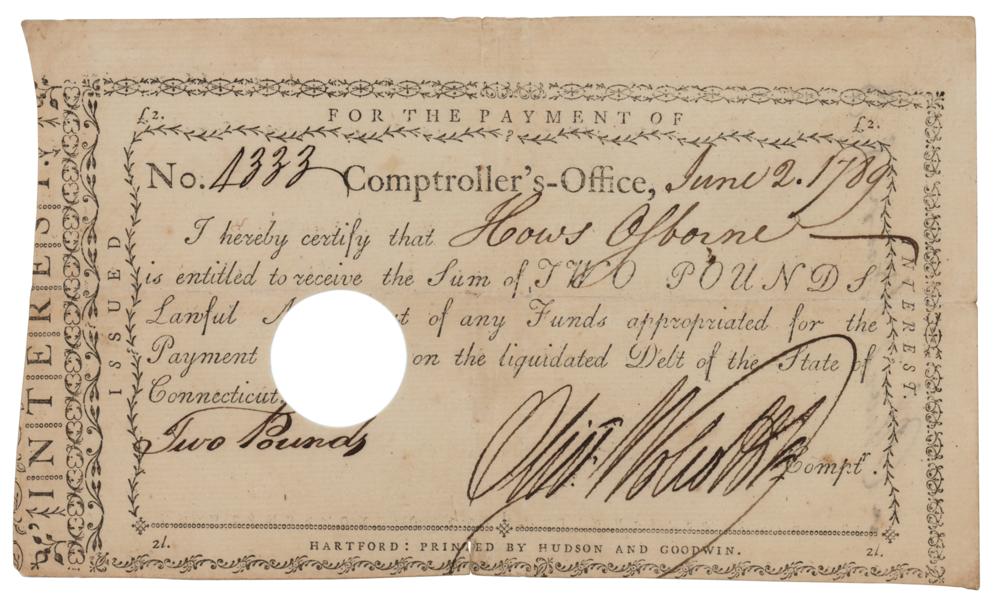 £2. FOR THE PAYMENT OF £2.
No. 4333 Comptroller's-Office, June 2. 1789
I hereby certify that Hows Osborne
is entitled to receive the Sum of TWO POUNDS
Lawful of any Funds appropriated for the
Payment on the liquidated Debt of the State of
Connecticut,
Two Pounds
Oliv Wolcott Jr Comptr.
2l. HARTFORD: PRINTED BY HUDSON AND GOODWIN. 2l.
INTEREST.
ISSUED
INTEREST.